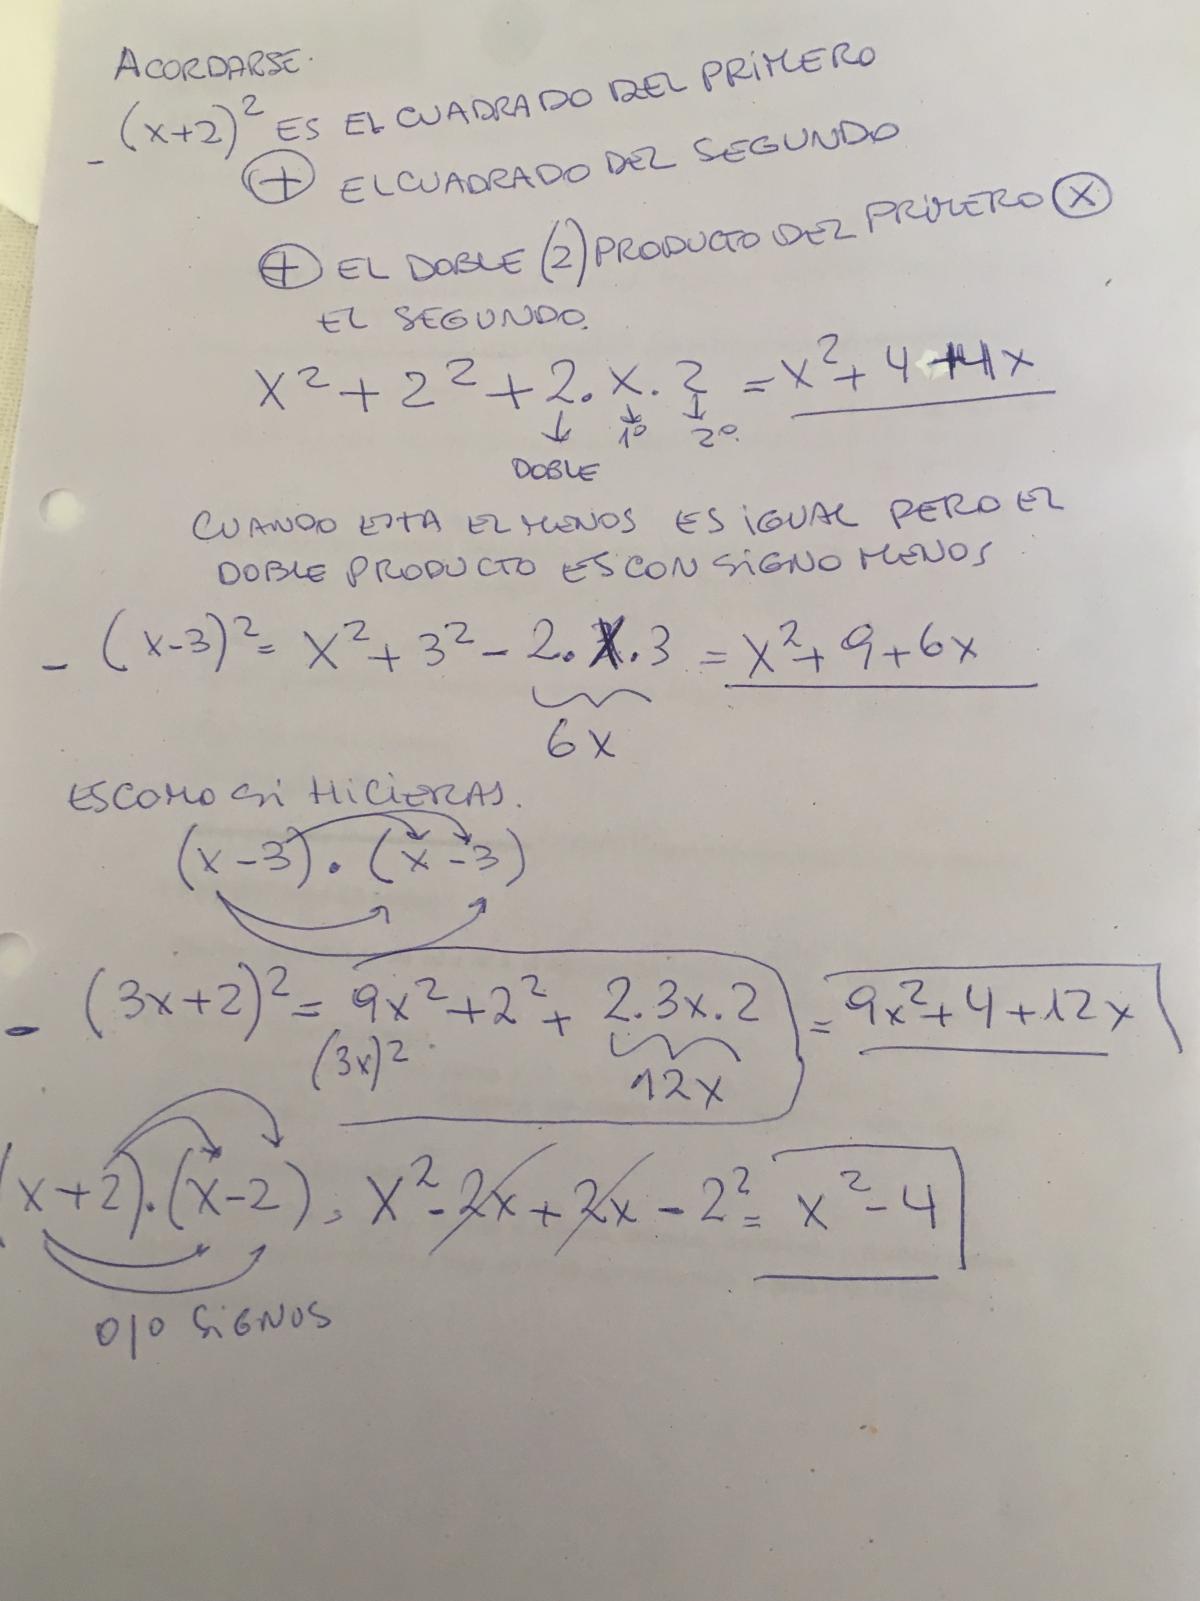 ACORDARSE.
- (x+2)² ES EL CUADRADO DEL PRIMERO
⊕ EL CUADRADO DEL SEGUNDO
⊕ EL DOBLE (2) PRODUCTO DEL PRIMERO ⊗
EL SEGUNDO.
x² + 2² + 2 . x . 2 = x² + 4 + 4x
↓ ↓ ↓
1º 2º.
DOBLE
CUANDO ESTA EL MENOS ES IGUAL PERO EL
DOBLE PRODUCTO ES CON SIGNO MENOS
- (x-3)² = x² + 3² - 2 . x . 3 = x² + 9 + 6x
6x
ES COMO SI HICIERAS.
(x-3) . (x-3)
- (3x+2)² = 9x² + 2² + 2.3x.2 = 9x² + 4 + 12x
(3x)²
12x
(x+2).(x-2) = x² - 2x + 2x - 2² = x² - 4
OJO SIGNOS